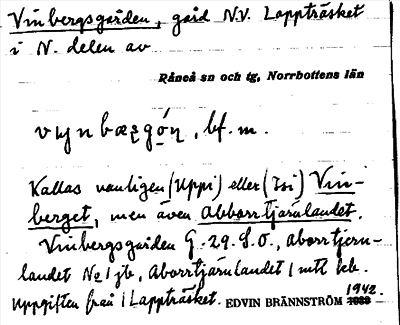 Vinbergsgården, gård N.V. Lappträsket
i N. delen av
Råneå sn och tg, Norrbottens län
bf. m.
Kallas vanligen (Uppi) eller (Isi) Vin-
berget, men även Abborrtjärnlandet.
Vinbergsgården G. 29. S.O., Aborrtjern-
landet No 1 jb, Aborrtjärnlandet 1 mtl
Uppgiften från 1 Lappträsket. EDVIN BRÄNNSTRÖM 1942.